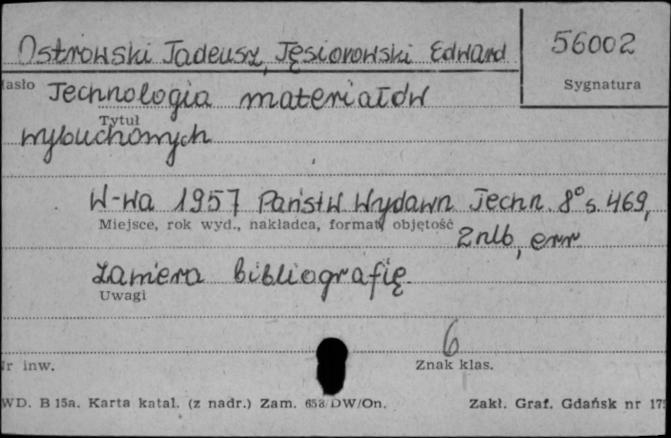 Ostrowski Tadeusz, Jęsiorowski Edward
56002
asło
Sygnatura
Technologia materiałów
Tytuł
wybuchowych
W-wa 1957 Państw Wydawn Techn. 8° s. 469,
Miejsce, rok wyd., nakładca, format, objętość
2 nlb, err
zawiera bibliografię
Uwagi
6
Nr inw.
Znak klas.
WD. B 15a. Karta katal. (z nadr.) Zam. 658/DW/On.
Zakł. Graf. Gdańsk nr 17